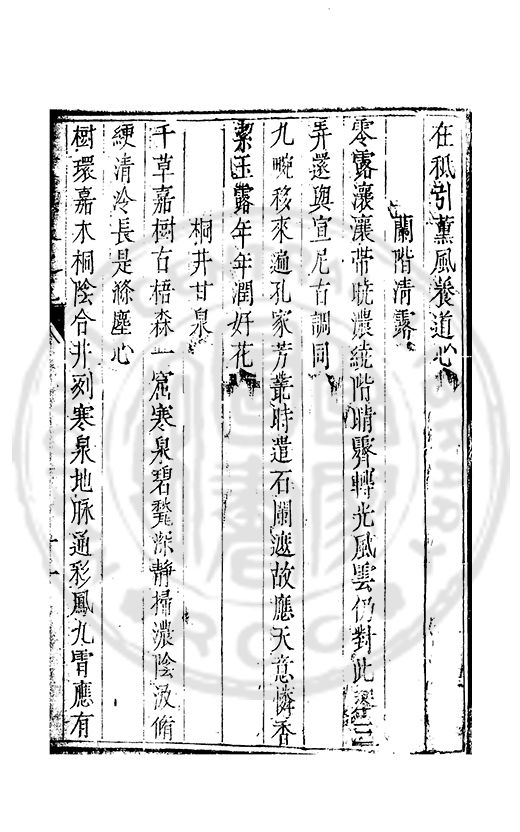 在祗引薰風養道心
蘭階清露
零露瀼瀼帶曉濃繞階晴霽轉光風雲仍對此琴三
弄還與宣尼古調同
九畹移來遍孔家芳叢時遣石闌遮故應天意憐香
潔玉露年年潤好花
桐井甘泉
千草嘉樹古梧森一窟寒泉碧甃深靜掃濃陰汲脩
綆清冷長是滌塵心
樹環嘉木桐陰合井冽寒泉地脉通彩鳳九霄應有